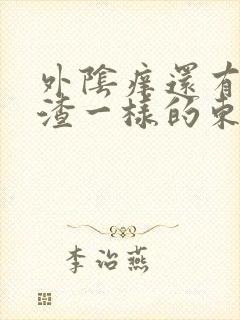 外陰痒還有
渣一樣的東
李治燕